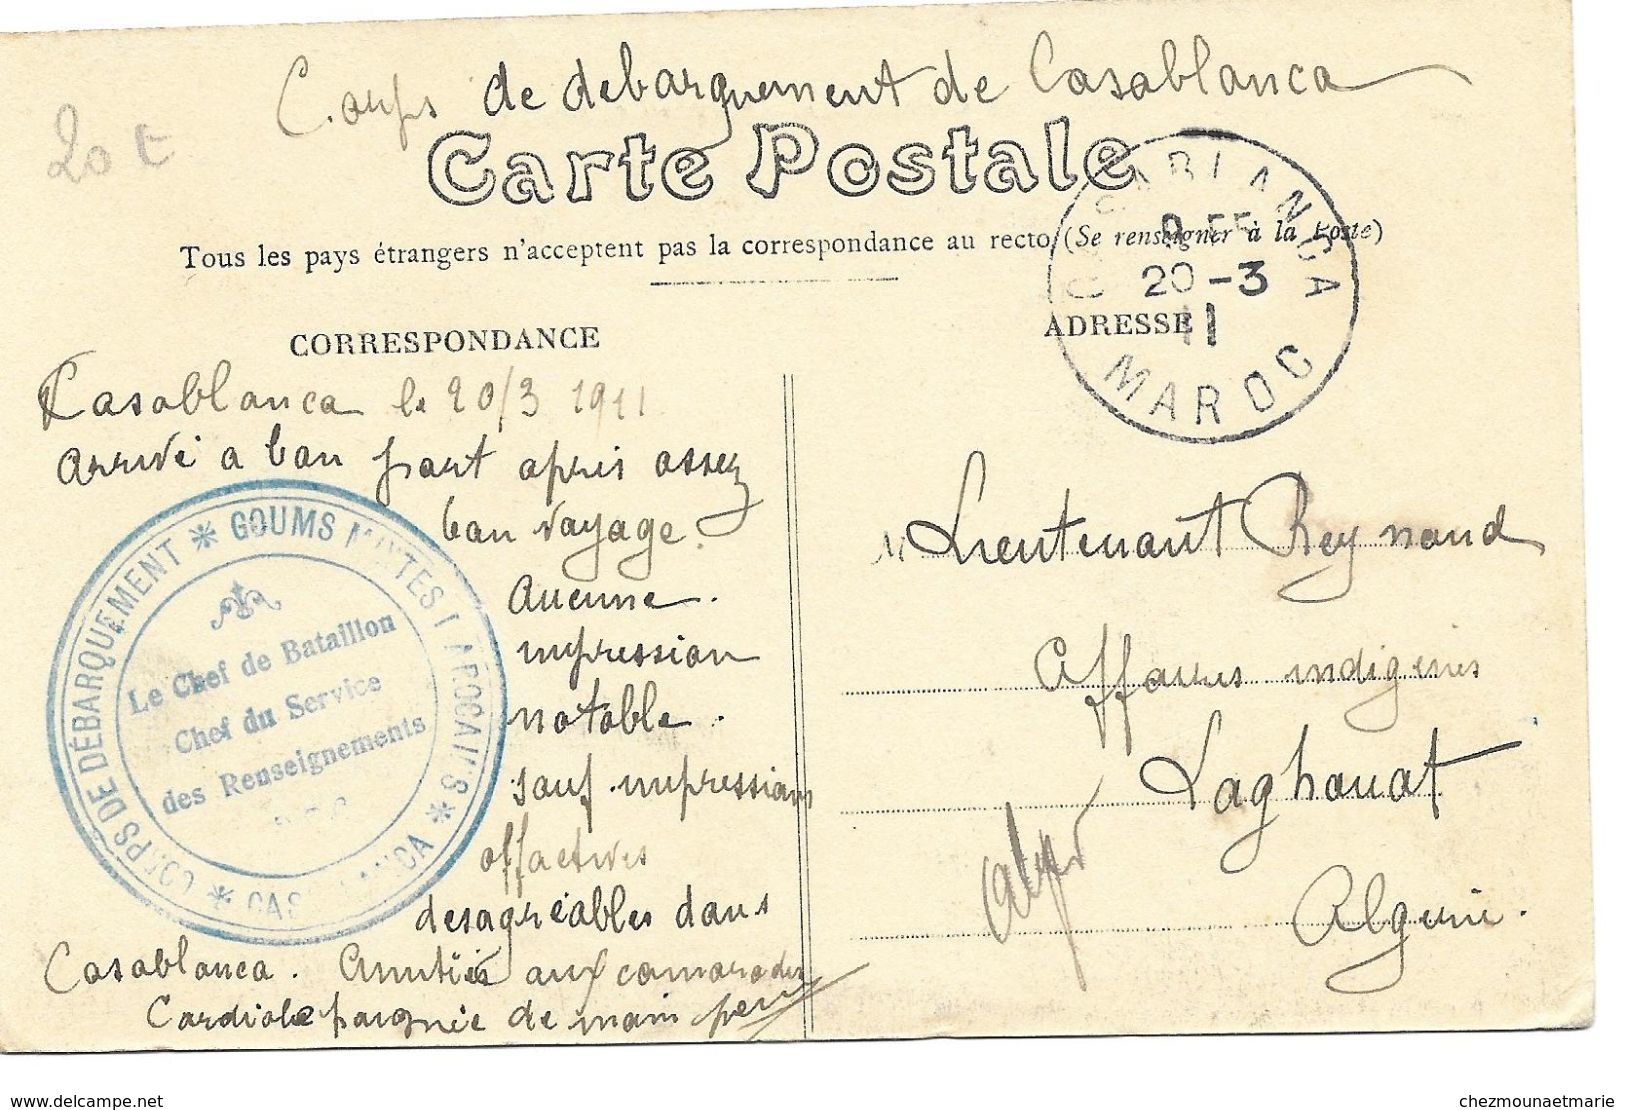 Corps de debarquement de Casablanca
20 t
Carte Postale
Tous les pays étrangers n'acceptent pas la correspondance au recto (Se renseigner à la Poste)
CASABLANCA
20 - 3
11
MAROC
CORRESPONDANCE
ADRESSE
Casablanca le 20/3 1911
arrivé a bon port apris assez
bon voyage.
Aucune.
impression
notable.
sauf impressions
olfactives
desagréables dans
Casablanca. Amitiés aux camarades
Cordiale poignée de main
CORPS DE DÉBARQUEMENT * GOUMS MIXTES MAROCAINS * CASABLANCA *
Le Chef de Bataillon
Chef du Service
des Renseignements
Lieutenant Reynaud
Affaires indigenes
Laghouat
Algerie.
delcampe.net
chezmounaetmarie